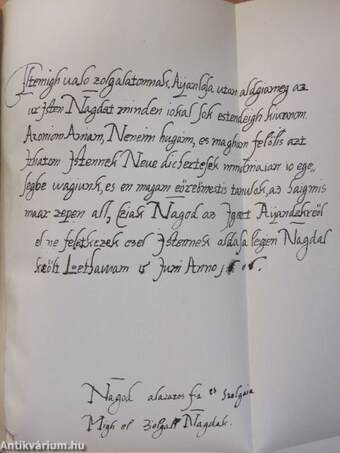 Iltenigh valo zolgalatomnak, Ayanlasa utan aldgiameg az
ur Isten Nagdat minden iokal sok estendeigh kiuanom.
Azoniom Aniam, Neneim hugaim, es magham felölis azt
Irhatom Istennek Neue dichertesek mindniaian io ege,,
segbe vagiunk, es en magam eözermesto tanulok, az haigmis
maar zepen all, Czak Nagod az Igert Aiandekrеöl
el ne feletkezek ezel Istennek aldasa legien Nagdal
költ Lethauam 15 Juni Anno 1606.
Nagod alazatos fia es Szolgaia
Migh el Zolgalt Nagdak.
Antikvárium.hu